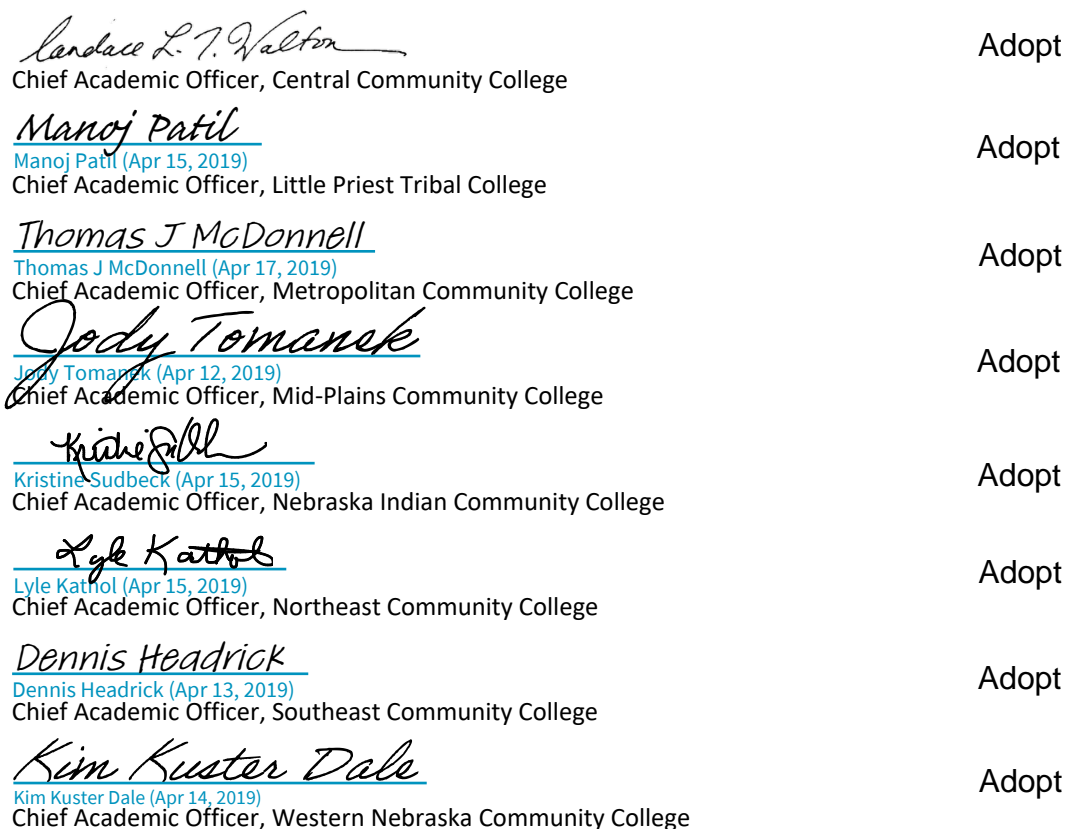 Candace L. T. Walton Adopt
Chief Academic Officer, Central Community College
Manoj Patil Adopt
Manoj Patil (Apr 15, 2019)
Chief Academic Officer, Little Priest Tribal College
Thomas J McDonnell Adopt
Thomas J McDonnell (Apr 17, 2019)
Chief Academic Officer, Metropolitan Community College
Jody Tomanek Adopt
Jody Tomanek (Apr 12, 2019)
Chief Academic Officer, Mid-Plains Community College
Adopt
Kristine Sudbeck (Apr 15, 2019)
Chief Academic Officer, Nebraska Indian Community College
Lyle Kathol Adopt
Lyle Kathol (Apr 15, 2019)
Chief Academic Officer, Northeast Community College
Dennis Headrick Adopt
Dennis Headrick (Apr 13, 2019)
Chief Academic Officer, Southeast Community College
Kim Kuster Dale Adopt
Kim Kuster Dale (Apr 14, 2019)
Chief Academic Officer, Western Nebraska Community College